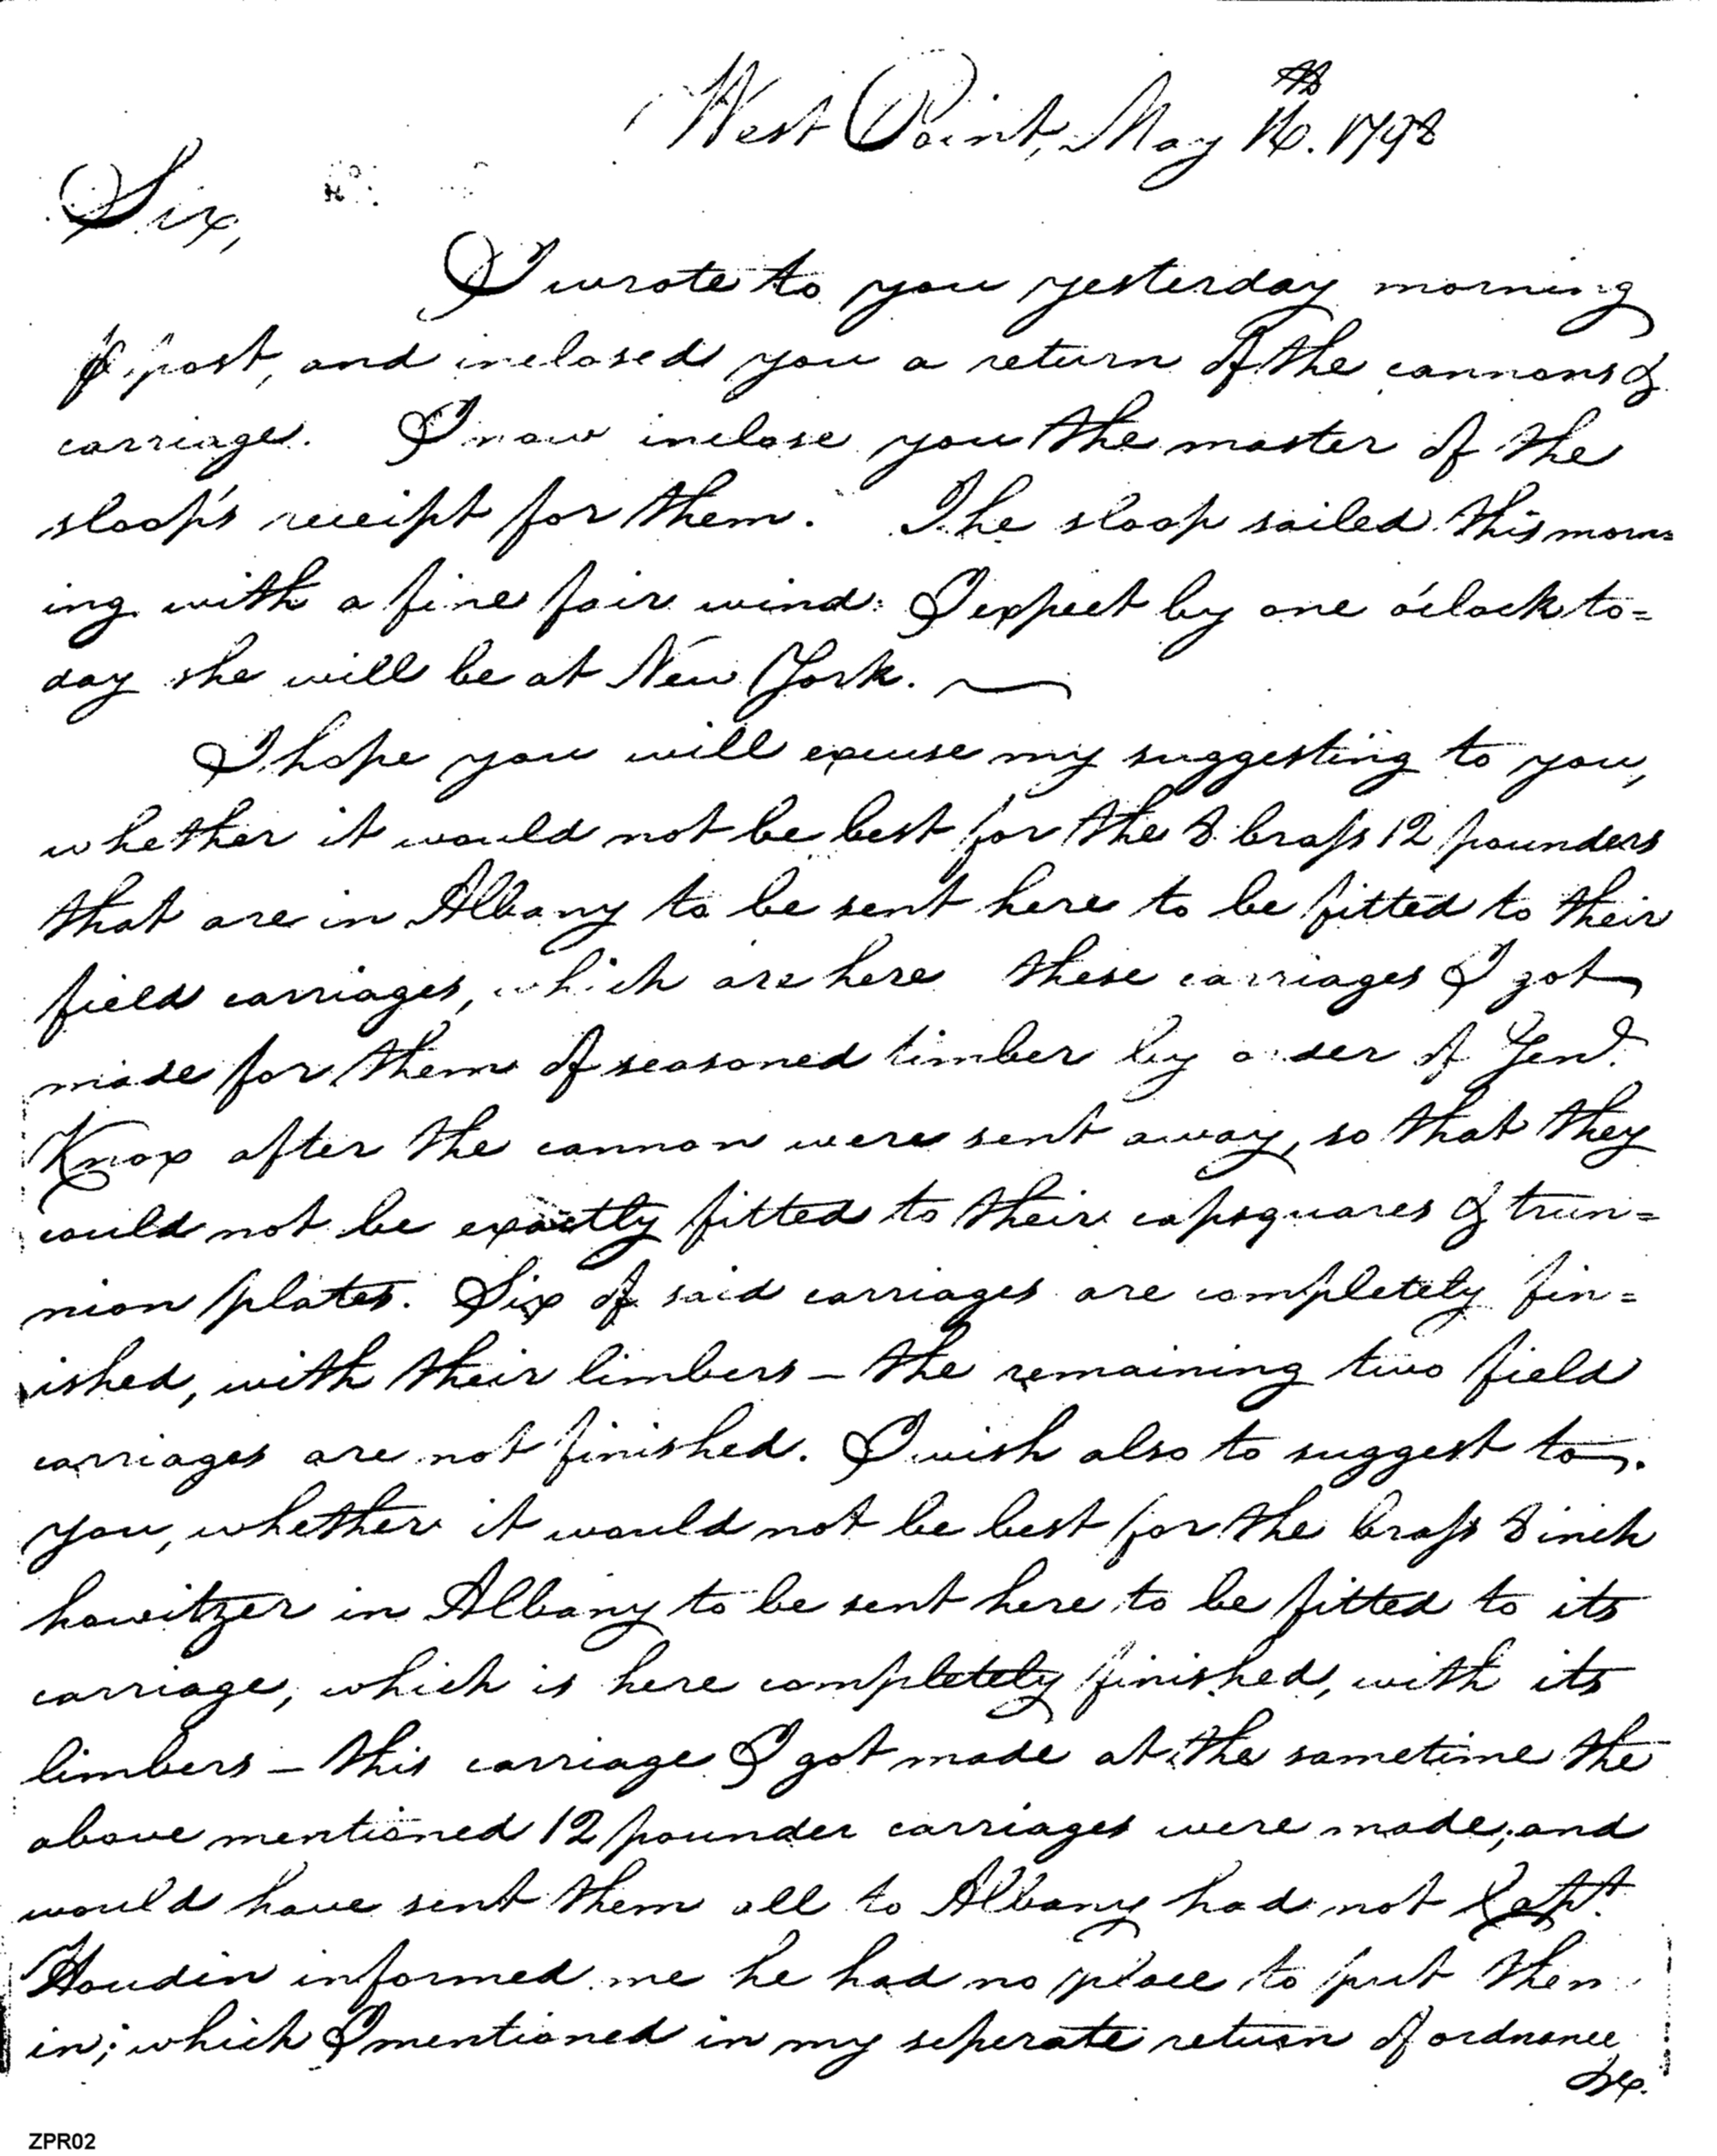 West Point, May 16th. 1798
Sir,
I wrote to you yesterday morning
post, and inclosed you a return of the cannons &
carriages. I now inclose you the master of the
sloop's receipt for them. The sloop sailed this morn=
ing with a fine fair wind: I expect by one o'clock to=
day she will be at New York.
I hope you will excuse my suggesting to you,
whether it would not be best for the 8 brass 12 pounders
that are in Albany to be sent here to be fitted to their
field carriages, which are here these carriages I got
made for them of seasoned timber by order of Genl.
Knox after the cannon were sent away, so that they
could not be exactly fitted to their capsquares & trun=
nion plates. Six of said carriages are completely fin=
ished, with their limbers – the remaining two field
carriages are not finished. I wish also to suggest to
you, whether it would not be best for the brass 8 inch
howitzer in Albany to be sent here to be fitted to its
carriage, which is here completely finished, with its
limbers – this carriage I got made at the sametime the
above mentioned 12 pounder carriages were made; and
would have sent them all to Albany had not Capt.
Houdin informed me he had no place to put them
in; which I mentioned in my seperate return of ordnance
&c.
ZPR02